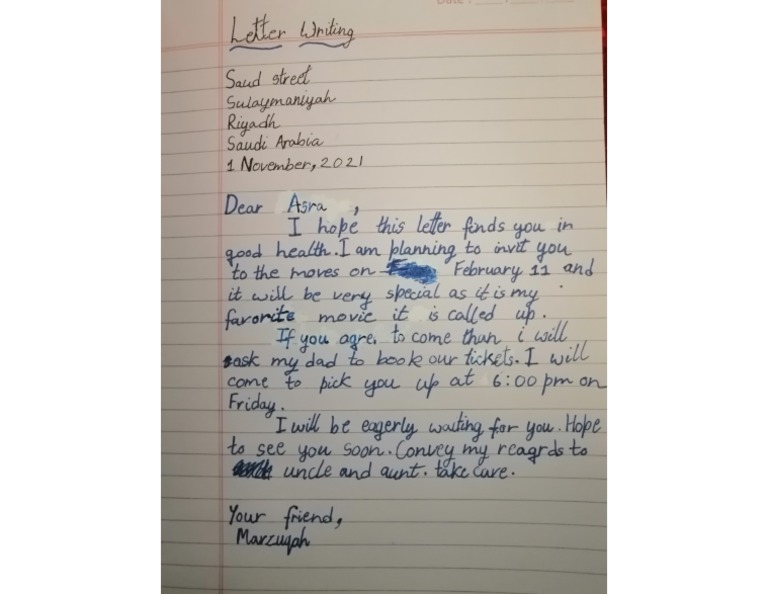 Date :
Letter Writing
Saud street
Sulaymaniyah
Riyadh
Saudi Arabia
1 November, 2021
Dear Asra ,
I hope this letter finds you in
good health. I am planning to invit you
to the moves on February 11 and
it will be very special as it is my
favorite movie it is called up.
If you agre. to come than i will
ask my dad to book our tickets. I will
come to pick you up at 6:00 pm on
Friday.
I will be eagerly waiting for you. Hope
to see you soon. Convey my reagrds to
uncle and aunt. take care.
Your friend,
Marzuqah